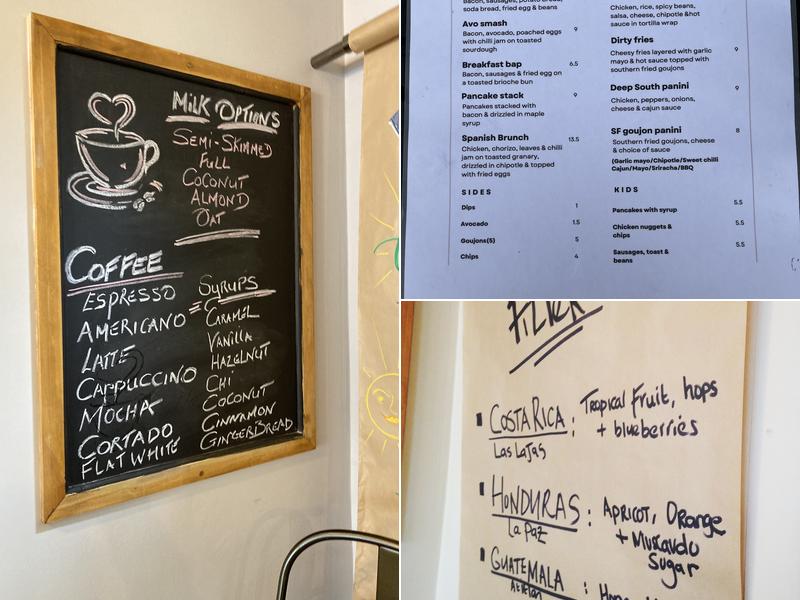 MILK OPTIONS
SEMI-SKIMMED
FULL
COCONUT
ALMOND
OAT
COFFEE
ESPRESSO
AMERICANO
LATTE
CAPPUCCINO
MOCHA
CORTADO
FLAT WHITE
SYRUPS
CARAMEL
VANILLA
HAZELNUT
CHI
COCONUT
CINNAMON
GINGERBREAD
Bacon, sausages, potato bread,
soda bread, fried egg & beans
Avo smash
Bacon, avocado, poached eggs 9
with chilli jam on toasted
sourdough
Breakfast bap 6.5
Bacon, sausages & fried egg on
a toasted brioche bun
Pancake stack 9
Pancakes stacked with
bacon & drizzled in maple
syrup
Spanish Brunch 13.5
Chicken, chorizo, leaves & chilli
jam on toasted granary,
drizzled in chipotle & topped
with fried eggs
SIDES
Dips 1
Avocado 1.5
Goujons(5) 5
Chips 4
Chicken, rice, spicy beans,
salsa, cheese, chipotle &hot
sauce in tortilla wrap
Dirty fries
Cheesy fries layered with garlic 9
mayo & hot sauce topped with
southern fried goujons
Deep South panini 9
Chicken, peppers, onions,
cheese & cajun sauce
SF goujon panini 8
Southern fried goujons, cheese
& choice of sauce
(Garlic mayo/Chipotle/Sweet chilli
Cajun/Mayo/Sriracha/BBQ
KIDS
Pancakes with syrup 5.5
Chicken nuggets & 5.5
chips
Sausages, toast & 5.5
beans
FILTER
COSTA RICA : Tropical fruit, hops
Las Lajas + blueberries
HONDURAS : APRICOT, ORange
La Paz + Muscavdo
Sugar
GUATEMALA :